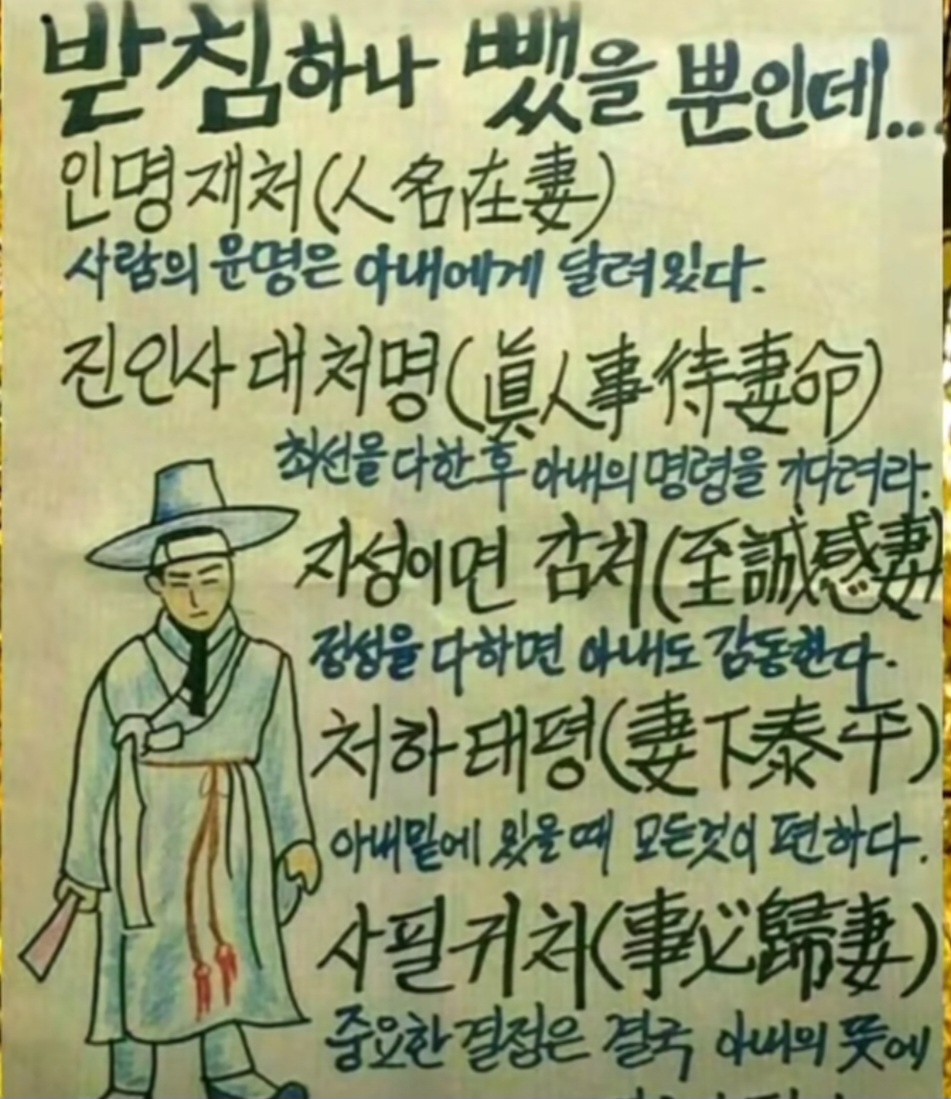 받침하나 뺐을 뿐인데...
인명재처(人名在妻)
사람의 운명은 아내에게 달려있다.
진인사대처명(眞人事待妻命)
최선을다한후 아내의 명령을 기다려라.
지성이면 감처(至誠感妻)
정성을 다하면 아내도 감동한다.
처하태평(妻下泰平)
아내밑에 있을때 모든것이 편하다.
사필귀처(事必歸妻)
중요한 결정은 결국 아내의 뜻에